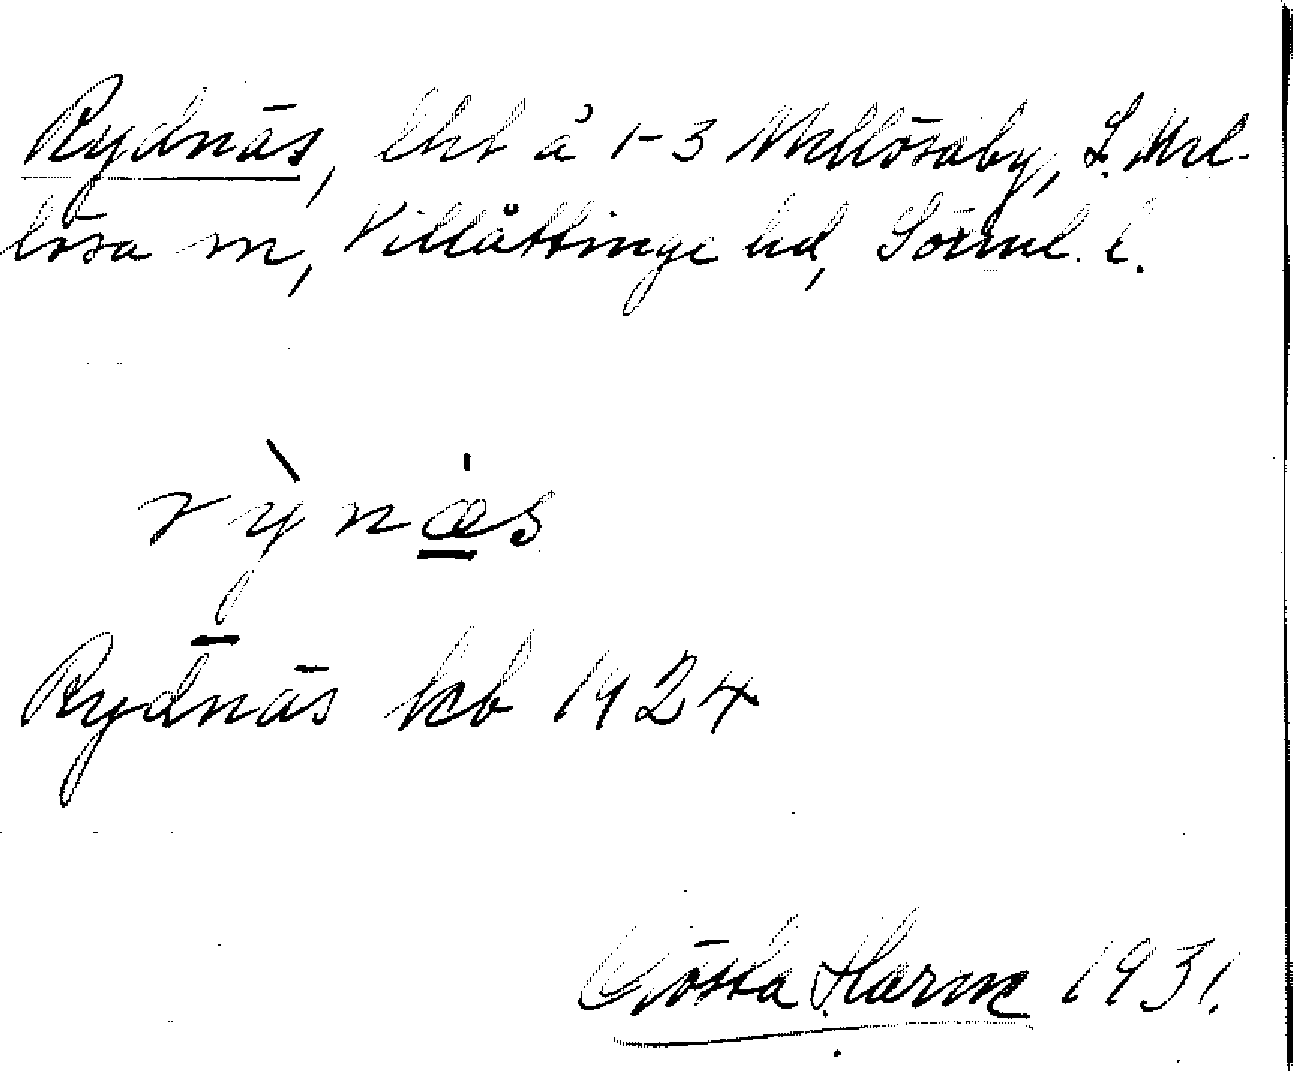 Rydnäs, lht å 1-3 Mellösaby, L. Mel-
lösa sn, Villåttinge hd, Söderml. l.
rỳnæ̲s
Rydnäs kb 1924
Gösta Harne 1931.